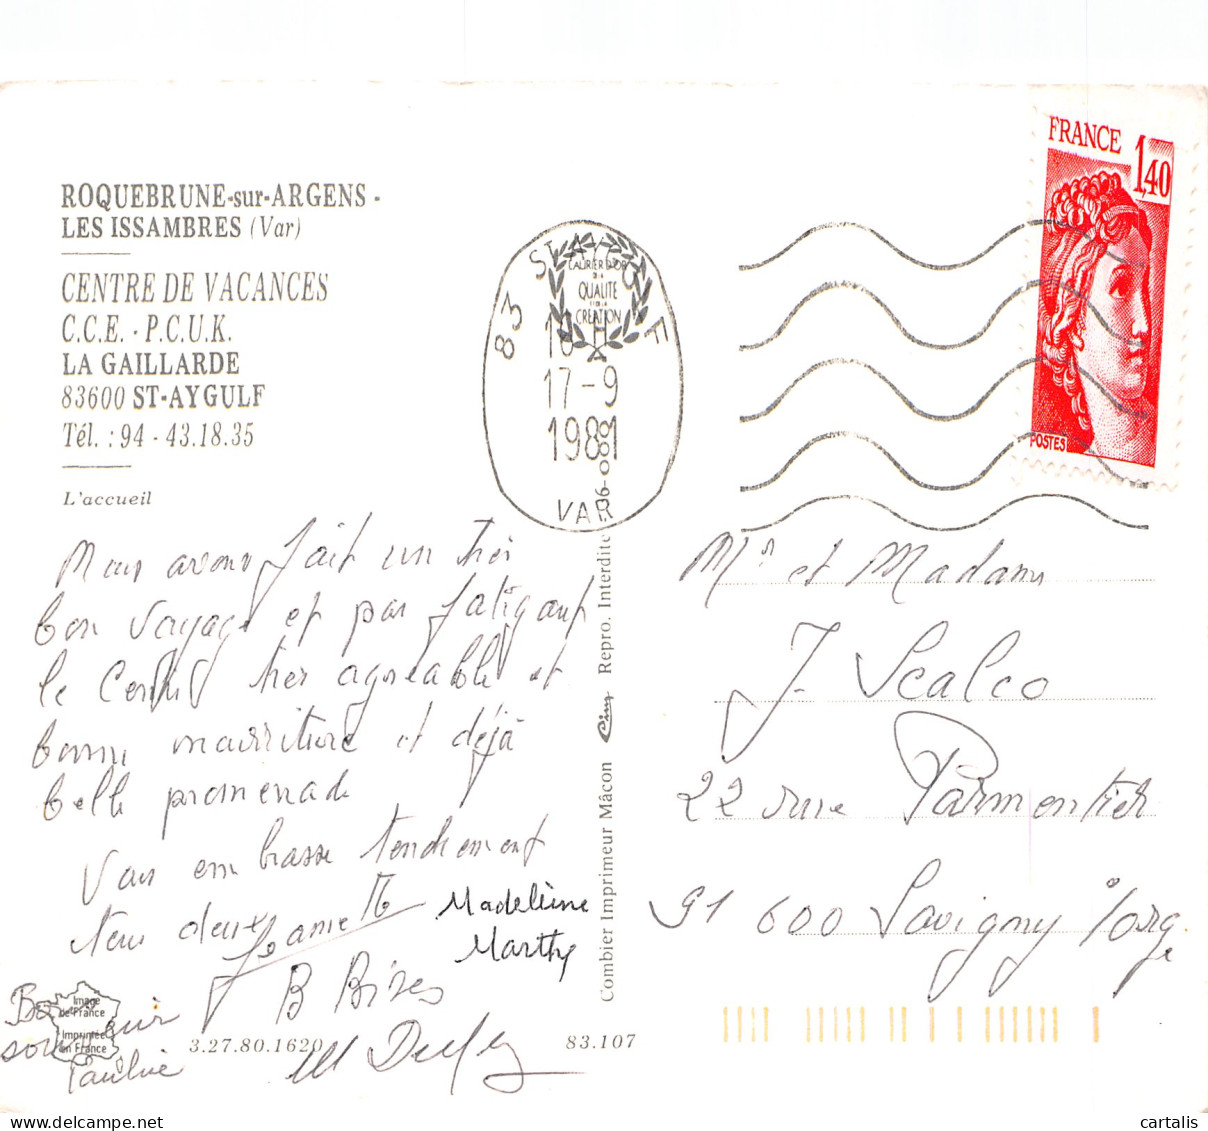 FRANCE
1,40
POSTES
ROQUEBRUNE-sur-ARGENS -
LES ISSAMBRES (Var)
CENTRE DE VACANCES
C.C.E. - P.C.U.K.
LA GAILLARDE
83600 ST-AYGULF
Tél. : 94 - 43.18.35
L'accueil
83 ST AYGULF
LAURIER D'OR
QUALITE
CREATION
17-9
1981
VAR
Nous avons fait un très
bon voyage et pas fatigant
le très agreable et
bonne nourriture et déjà
belle promenade
Vous embrasse tendrement
tous deux
Madeleine
Marthe
B Bises
Bon
souvenir
Pauline
Image
de France
Imprimée
en France
3.27.80.1620
83.107
Combier Imprimeur Mâcon Cim Repro. Interdite
Mr et Madame
J. Scalco
22 rue Parmentier
91 600 Savigny /orge
cartalis